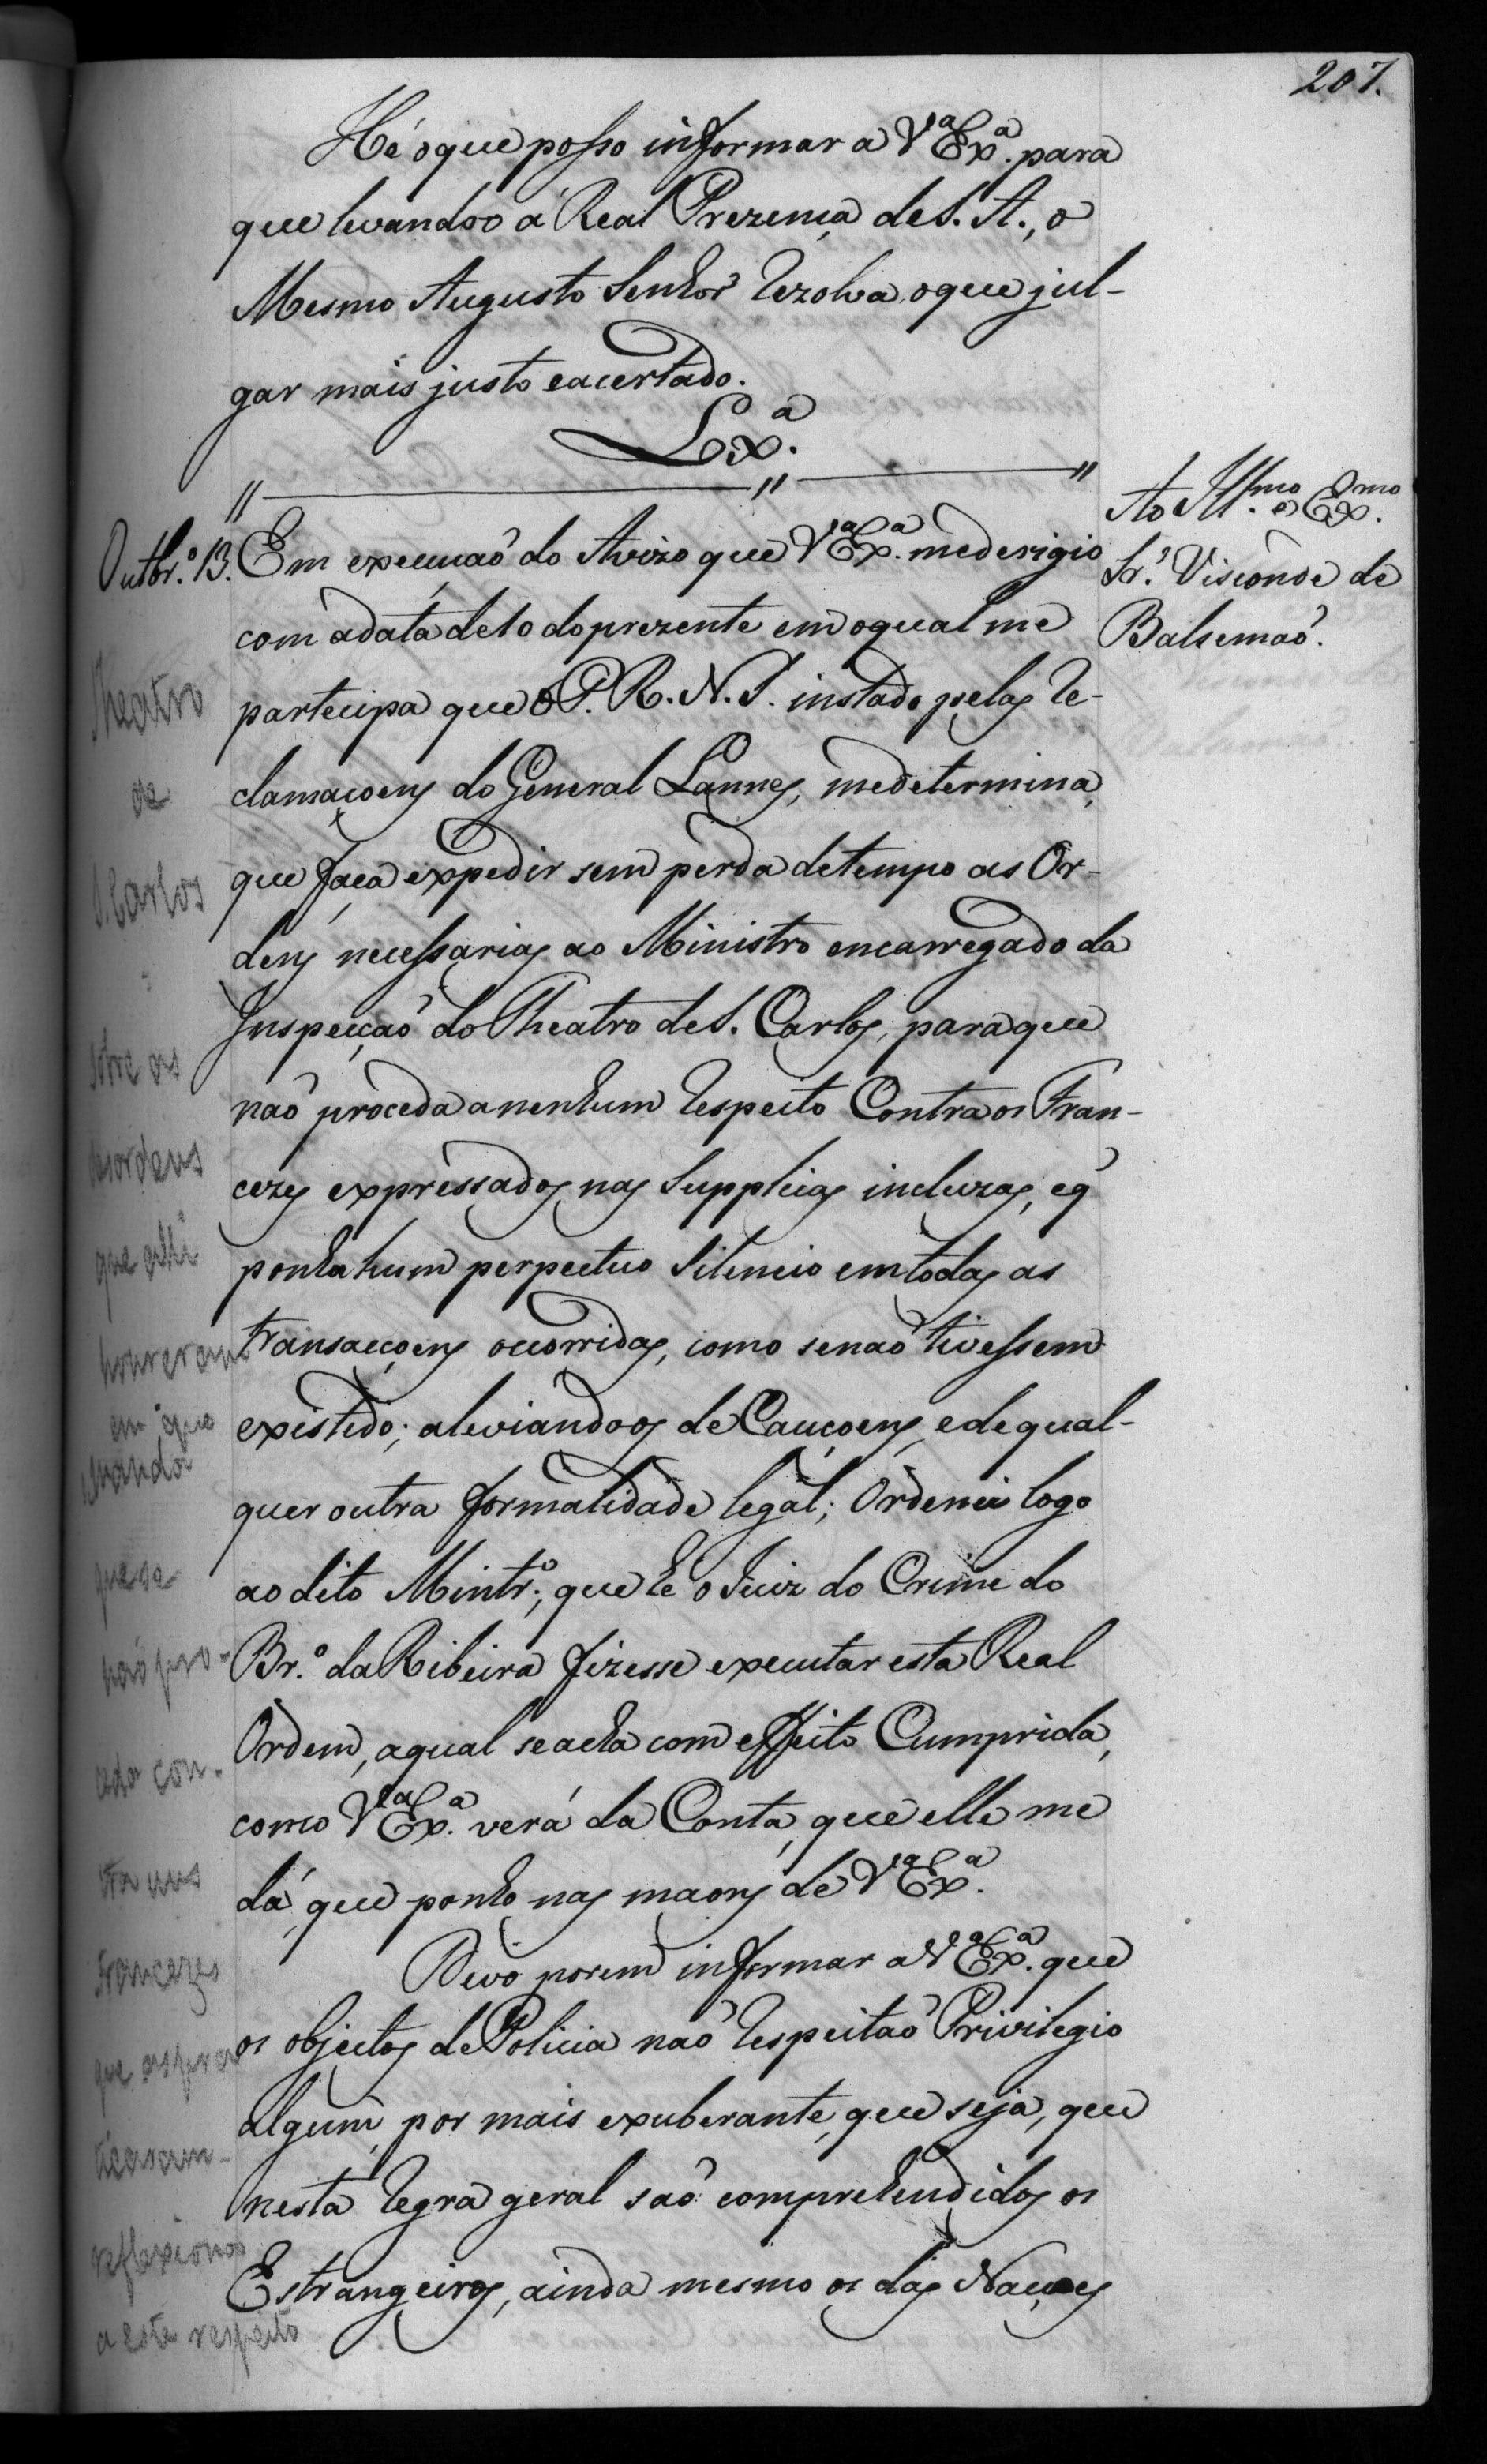 207.
Hé o que posso informar a V.ª Ex.ª para
que levandoo á Real Prezença de S. A., o
Mesmo Augusto Senhor rezolva o que jul-
gar mais justo e acertado.
Lx.ª
Ao Ill.mo e Ex.mo
Sr. Visconde de
Balsemaõ.
Outbr.º 13. Em execuçaõ do Avizo que V.ª Ex.ª me derigio
com a data de 10 do prezente em o qual me
partecipa que o P. R. N. S. instado pelas re-
clamaçoens do General Lannes, me determina,
que faça expedir sem perda de tempo as Or-
dens necessarias ao Ministro encarregado da
Inspecçaõ do Theatro de S. Carlos, para que
naõ proceda a nenhum respeito Contra os Fran-
cezes expressados nas Supplicas incluzas, e q̃
ponha hum perpectuo Silencio em todas as
transacçoens occorridas, como se naõ tivessem
existido; aleviandoos de Cauçoens, e de qual-
quer outra formalidade legal; Ordenei logo
ao dito Mintr.º, que he o Juiz do Crime do
Br.º da Ribeira fizesse executar esta Real
Ordem, a qual se acha com effeito Cumprida,
como V.ª Ex.ª verá da Conta, que elle me
dá, que ponho nas maons de V.ª Ex.ª
Devo porem informar a V.ª Ex.ª que
os objectos de Policia naõ respeitaõ Privilegio
algum, por mais exuberante, que seja, que
nesta regra geral saõ comprehendidos os
Estrangeiros, ainda mesmo os das Naçoes
Theatro
de
S. Carlos
sobre as
desordens
que alli
houveram
em que
manda
que se
naõ pro-
ceda con-
tra uns
Francezes
que as pra
ticaram-
reflexionas
a este respeito